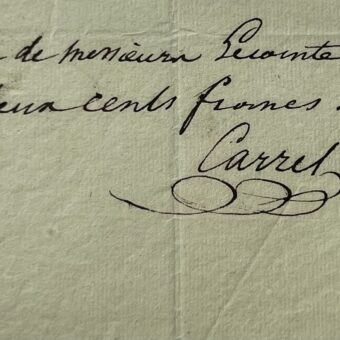 de messieurs Lecointe
deux cents francs.
Carrel